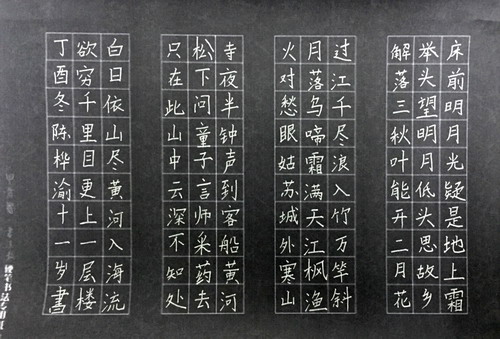 床前明月光疑是地上霜
举头望明月低头思故乡
解落三秋叶能开二月花
过江千尽浪入竹万竿斜
月落乌啼霜满天江枫渔
火对愁眠姑苏城外寒山
寺夜半钟声到客船黄河
松下问童子言师采药去
只在此山中云深不知处
白日依山尽黄河入海流
欲穷千里目更上一层楼
丁酉冬陈桦渝十一岁書